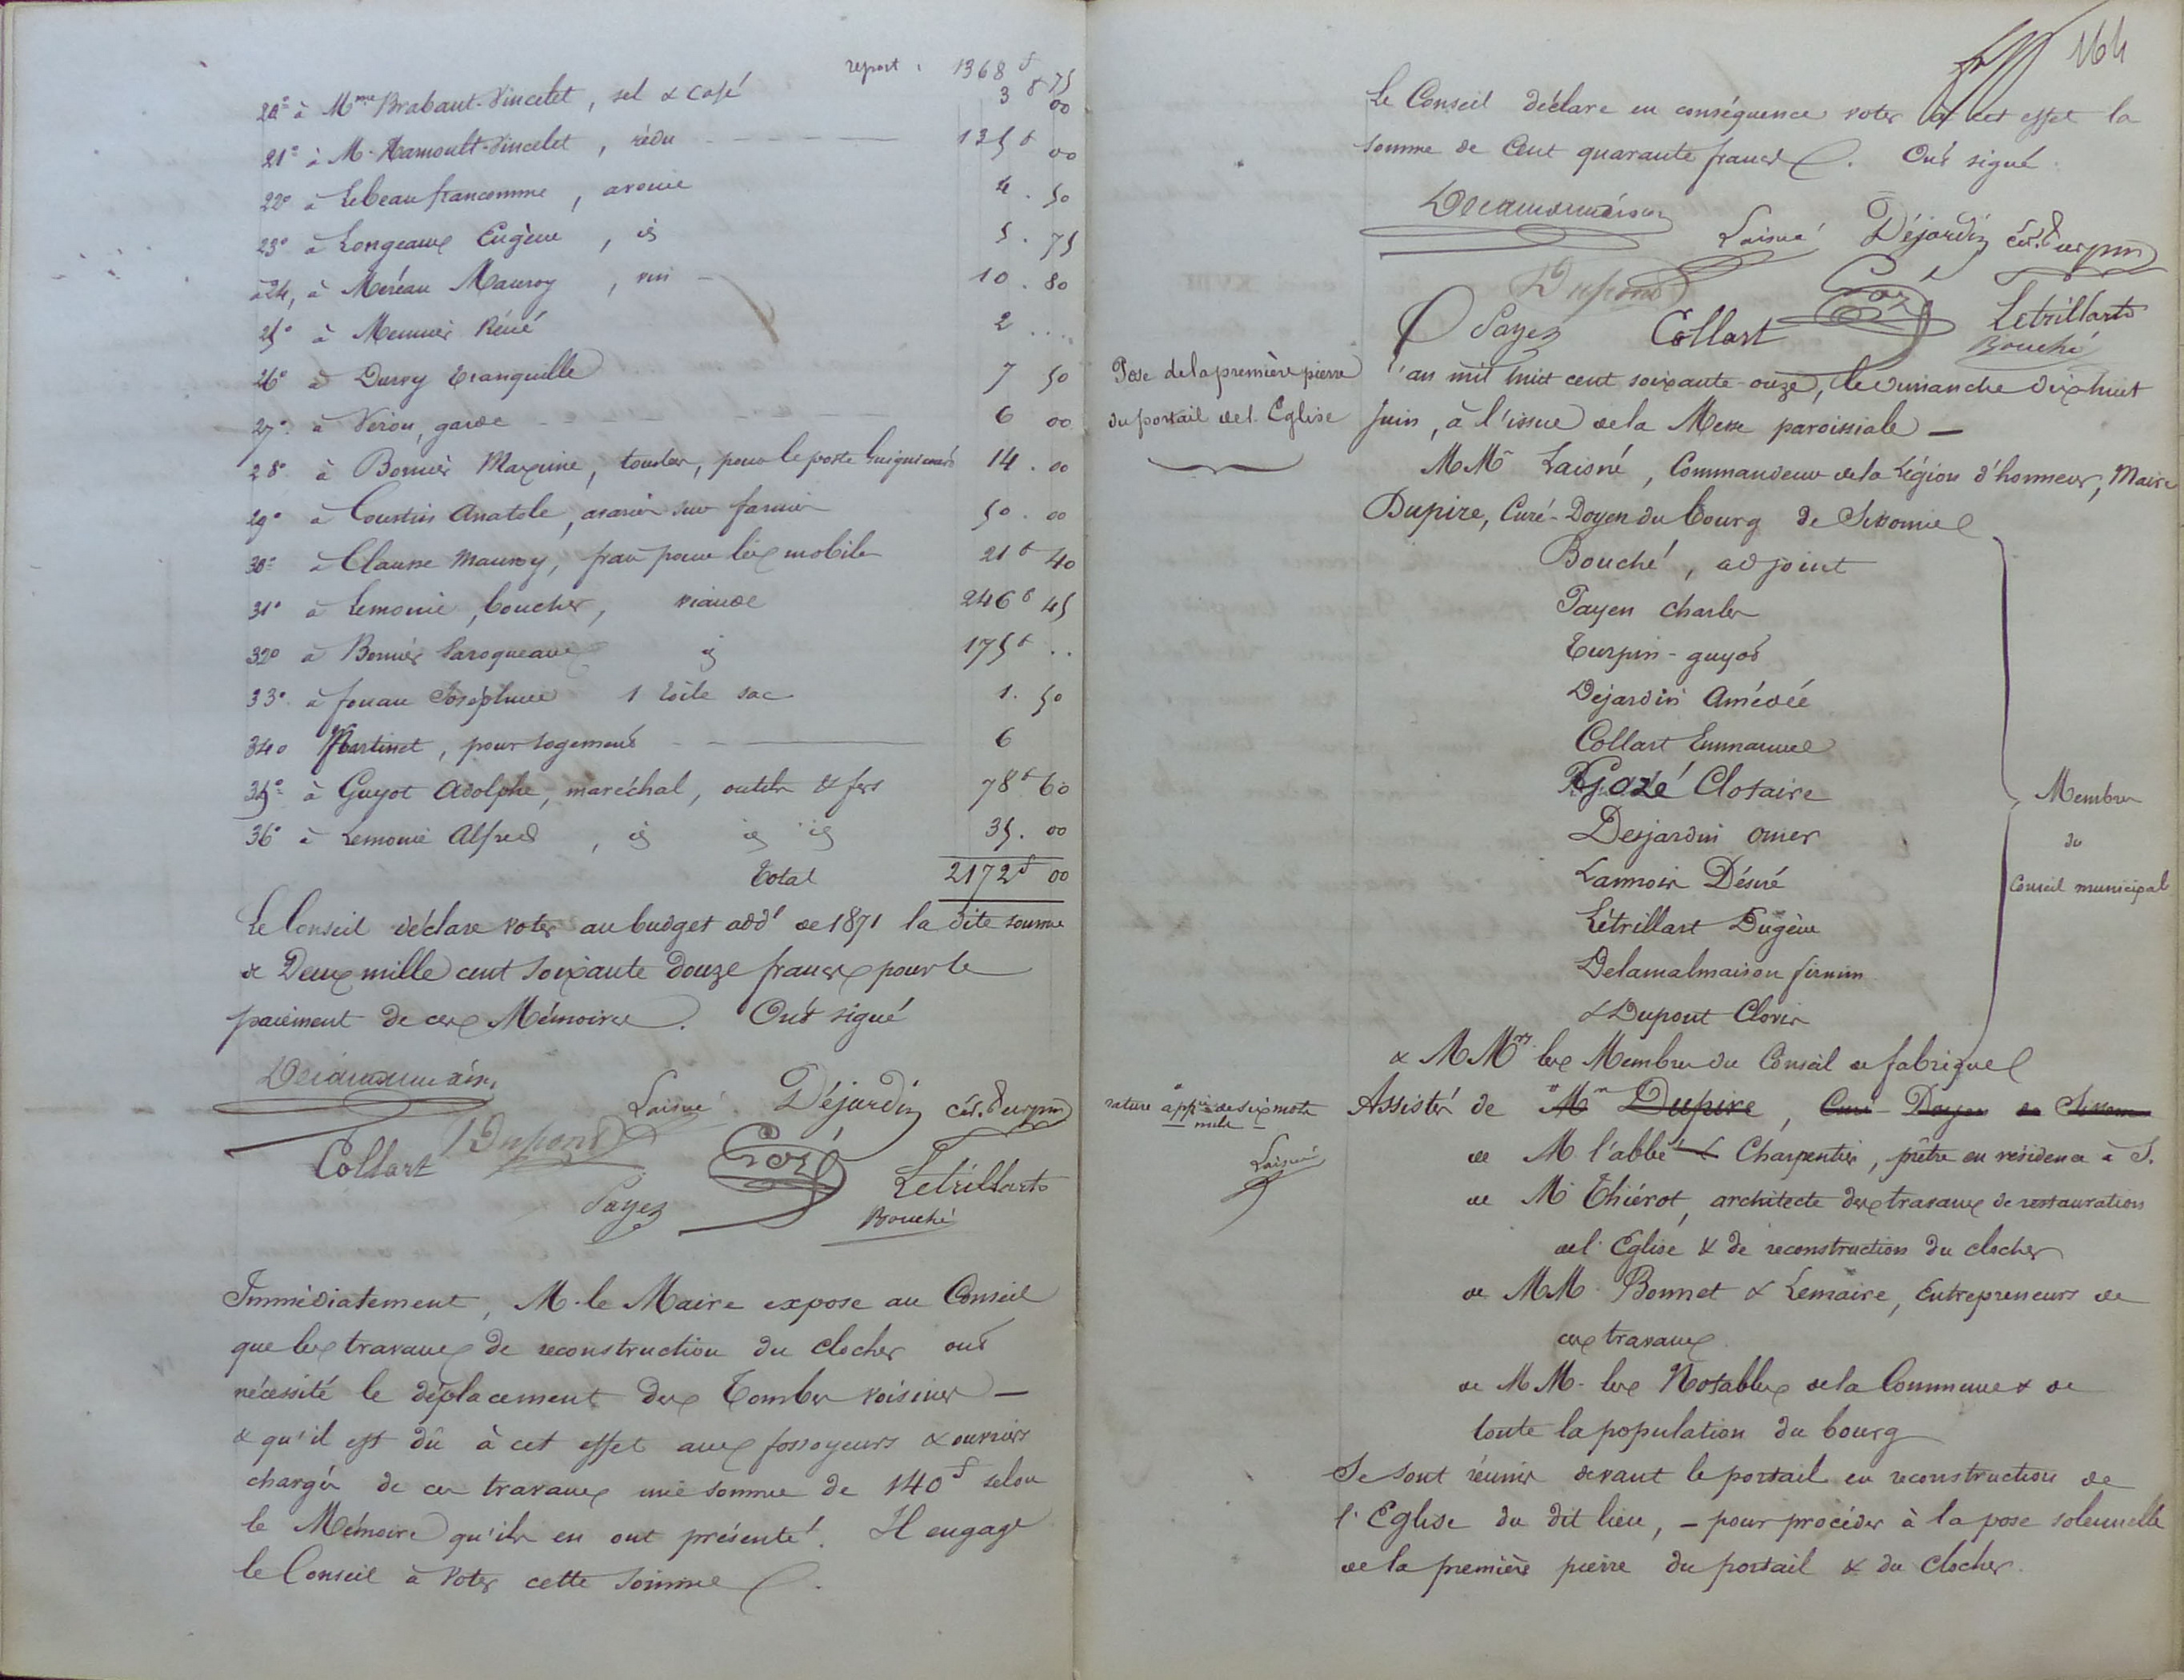 report : 1368 f 75
20° à Mme Brabant-Vincelet, sel & café 3 f 00
21° à M. Hamoult-Vincelet, 135 f 00
22° à Lebeau francomme, avoine 4 . 50
23° à Longeaux Eugène, id 5 . 75
à 24, à Méréau Mauroy, vin 10 . 80
25° à Meunier Réné 2 ....
26° à Durvy Tranquille 7 50
27° à Véron, garde 6 00
28° à Bonnier Maxime, pour le poste 14 . 00
29° à Coustin Anatole, 50 . 00
30° à Clausse Mauroy, pour les mobiles 21 f 40
31° à Lemoine, boucher, viande 246 f 45
32° à Bonnier Laroqueaux id 175 f ..
33° à fouau Joséphine 1 toile sac 1 . 50
34° Martinet, pour logement 6
35° à Guyot Adolphe, maréchal, outils & fers 78 f 60
36° à Lemoine Alfred, id id id 35 . 00
Total 2172 f 00
Le Conseil déclare voter au budget addl de 1871 la dite somme
de Deux mille cent soixante douze francs pour le
paiement de ces Mémoires. Ont signé
Laisné Déjardin Cés. Turpin
Collart Dupont Gozé Letrillart
Payen Bouché
Immédiatement, M. le Maire expose au Conseil
que les travaux de reconstruction du clocher ont
nécessité le déplacement des Tombes voisines —
& qu'il est dû à cet effet aux fossoyeurs & ouvriers
chargés de ces travaux une somme de 140 f selon
le Mémoire qu'ils en ont présenté. Il engage
le Conseil à voter cette somme.
164
Le Conseil déclare en conséquence voter à cet effet la
somme de Cent quarante francs. Ont signé
Laisné Déjardin Cés. Turpin
Dupont Gozé Letrillart
Payen Collart Bouché
Pose de la première pierre
du portail de l'Eglise
L'an mil huit cent soixante-onze, le dimanche dix huit
Juin, à l'issue de la Messe paroissiale —
MMrs Laisné, Commandeur de la Légion d'honneur, Maire
Dupire, Curé-Doyen du bourg de Sissonne
Bouché, adjoint
Payen Charles
Turpin-guyot
Dejardin Amédée
Collart Emmanuel
Gozé Clotaire
Desjardin Omer
Lannois Désiré
Létrillart Eugène
Delamalmaison firmin
& Dupont Clovis
Membres
du
Conseil municipal
& MMrs les Membres du Conseil de fabrique
rature appée de six mots
nuls
Laisné
Assistés de Mr Dupire, Curé-Doyen de Sissonne
de M l'abbé Charpentier, prêtre en résidence à S.
de Mr Thiérot, architecte des travaux de restauration
de l'Eglise & de reconstruction du clocher
de MM. Bonnet & Lemaire, Entrepreneurs de
ces travaux
de MM. les Notables de la Commune & de
toute la population du bourg
Se sont réunis devant le portail en reconstruction de
l'Eglise du dit lieu, — pour procéder à la pose solennelle
de la première pierre du portail & du Clocher.